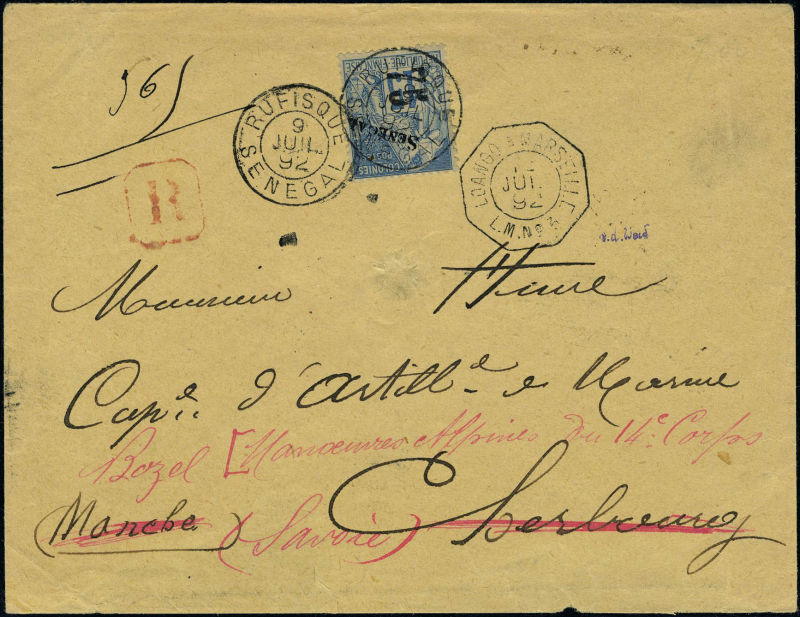 561
RUFISQUE
9
JUIL.
92
SENEGAL
RÉPUBLIQUE FRANÇAISE
75
SENEGAL
COLONIES
POSTES
LOANGO A MARSEILLE
JUIL
92
L.M. No 3
R
v.d. Weid
Monsieur
Capne d'Artillie de Marine
Bozel [Manœuvres Alpines du 14e Corps
(Manche) (Savoie) Cherbourg